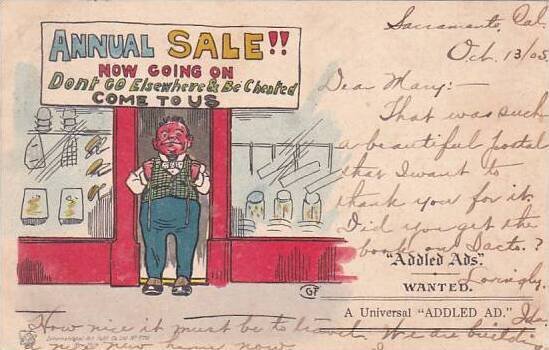 ANNUAL SALE!!
NOW GOING ON
Dont GO Elsewhere & Be Cheated
COME TO US
Sacramento, Cal.
Oct. 13/05.
Dear Mary:-
That was such
a beautiful postal
that I want to
thank you for it.
Did you get the
book on Sacto.?
Lovingly,
Ida
"Addled Ads".
WANTED.
A Universal "ADDLED AD."
How nice it must be to travel. We are building
a new home now